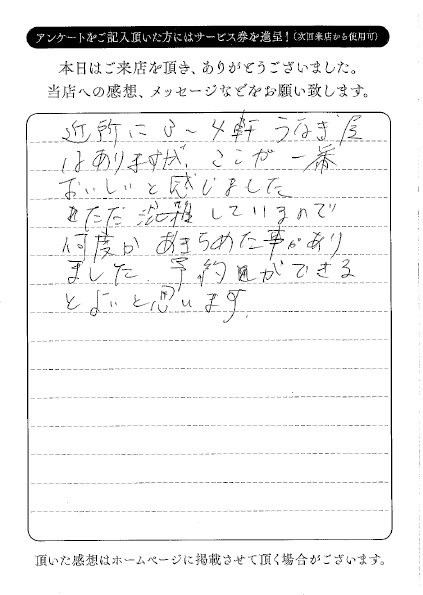 アンケートをご記入頂いた方にはサービス券を進呈！(次回来店から使用可)
本日はご来店を頂き、ありがとうございました。
当店への感想、メッセージなどをお願い致します。
近所に3～4軒うなぎ屋
はありますが、ここが一番
おいしいと感じました
ただ混雑しているので
何度かあきらめた事があり
ました。予約ができる
とよいと思います。
頂いた感想はホームページに掲載させて頂く場合がございます。